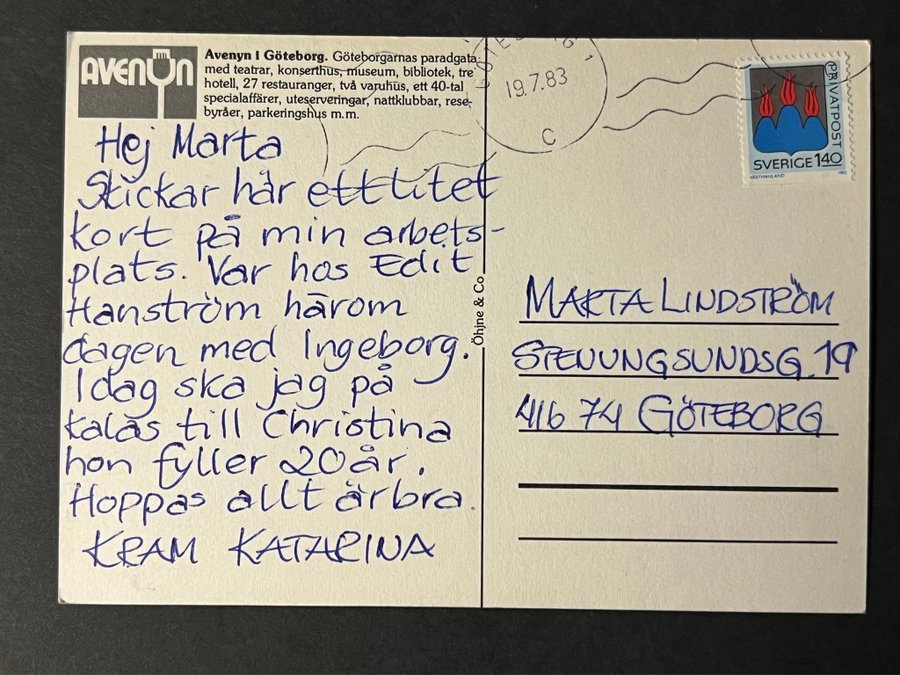 AVENYN
Avenyn i Göteborg. Göteborgarnas paradgata
med teatrar, konserthus, museum, bibliotek, tre
hotell, 27 restauranger, två varuhus, ett 40-tal
specialaffärer, uteserveringar, nattklubbar, rese-
byråer, parkeringshus m.m.
Hej Marta
Skickar här ett litet
kort på min arbets-
plats. Var hos Edit
Hanström härom
dagen med Ingeborg.
Idag ska jag på
kalas till Christina
hon fyller 20 år.
Hoppas allt är bra.
KRAM KATARINA
Öhjne & Co
19.7.83
C
PRIVATPOST
SVERIGE 1.40
VÄSTMANLAND
MARTA LINDSTRÖM
STENUNGSUNDSG. 19
416 74 GÖTEBORG